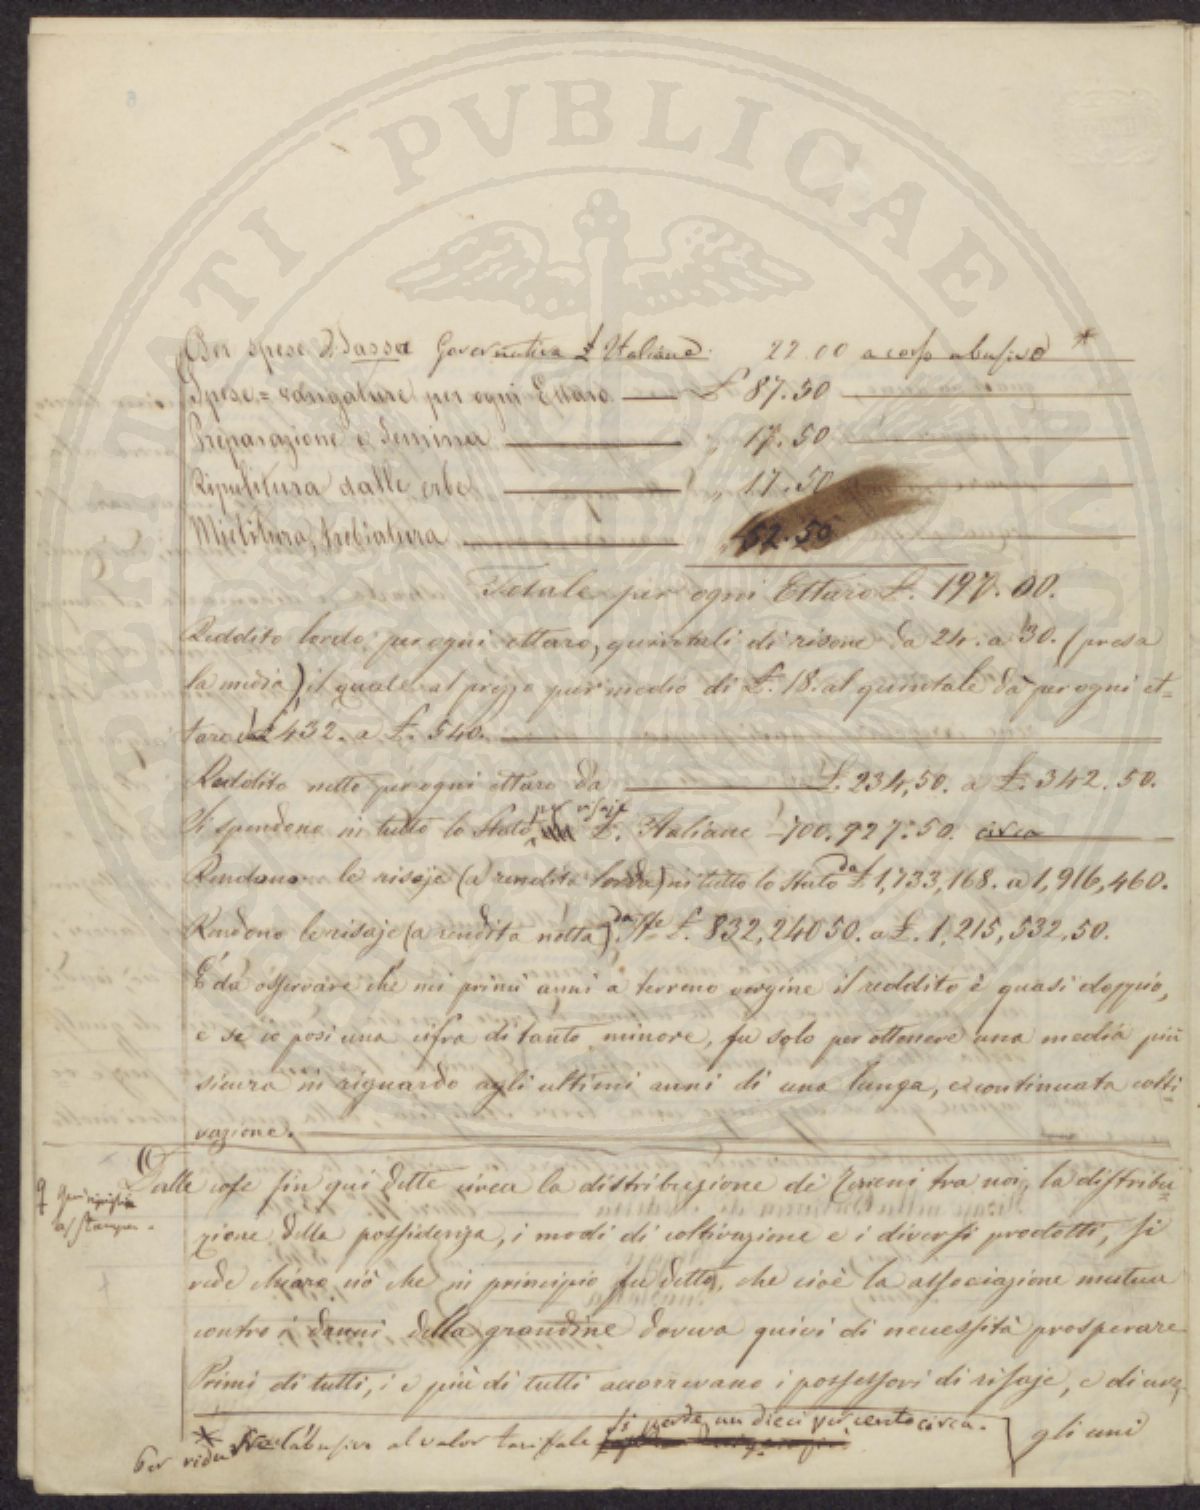 PERITI PVBLICAE
Per spese d Tassa Governativa £ Italiane 22.00 a corso abusivo *
Spese = vangature per ogni Ettaro £ 87.50
Preparazione e Semina " 17.50
Ripulitura dalle erbe " 17.50
Mietitura, trebiatura " 52.50
Totale per ogni Ettaro £. 197.00.
Reddito lordo per ogni ettaro, quintali di risone da 24. a 30. (presa
la media) il quale al prezzo pur medio di £. 18. al quintale dà per ogni et=
taro da £ 432. a £. 540.
Reddito netto per ogni ettaro da £. 234,50. a £. 342.50.
Si spendono in tutto lo Stato per risaje £. Italiane 700.927.50. circa
Rendono le risaje (a rendita lorda) in tutto lo Stato da £ 1,733,168. a 1,916,460.
Rendono le risaje (a rendita netta) da £. 832,240 50. a £. 1,215,532,50.
È da osservare che nei primi anni a terreno vergine il reddito è quasi doppio,
e se io posi una cifra di tanto minore, fu solo per ottenere una media più
sicura in riguardo agli ultimi anni di una lunga, e continuata colti
vazione.
Dalle cose fin qui dette circa la distribuzione de' Terreni tra noi, la distribu
zione della possidenza, i modi di coltivazione e i diversi prodotti, si
vede chiaro ciò che in principio fu detto, che cioè la associazione mutua
contro i danni della grandine doveva quivi di necessità prosperare
Primi di tutti, i e più di tutti accorrevano i possessori di risaje, e di
gli uni
* Per ridurre l'abusivo al valor tariffale si perde un dieci per cento circa.